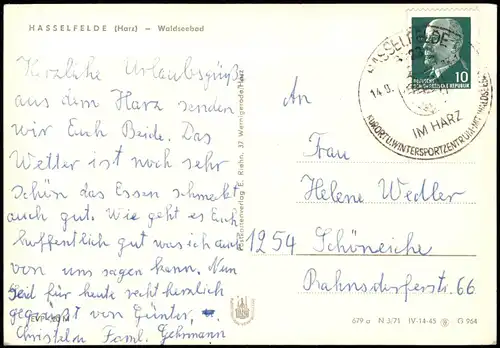 HASSELFELDE (Harz) – Waldseebad
Herzliche Urlaubsgrüße
aus dem Harz senden
wir Euch Beide. Das
Wetter ist noch sehr
schön das Essen schmekt
auch gut. Wie geht es Euch
hoffentlich gut was ich auch
von uns sagen kann. Nun
seid für heute recht herzlich
gegrüßt von Günter,
Christel u. Faml. Gehrmann
Postkartenverlag E. Riehn, 37 Wernigerode/Harz
10
DEUTSCHE DEMOKRATISCHE REPUBLIK
HASSELFELDE
14.9.
IM HARZ
KURORT U. WINTERSPORTZENTRUM MIT WALDSEEBAD
An
Frau
Helene Wedler
1254 Schöneiche
Rahnsdorferstr. 66
679 a N 3/71 IV-14-45 G 964